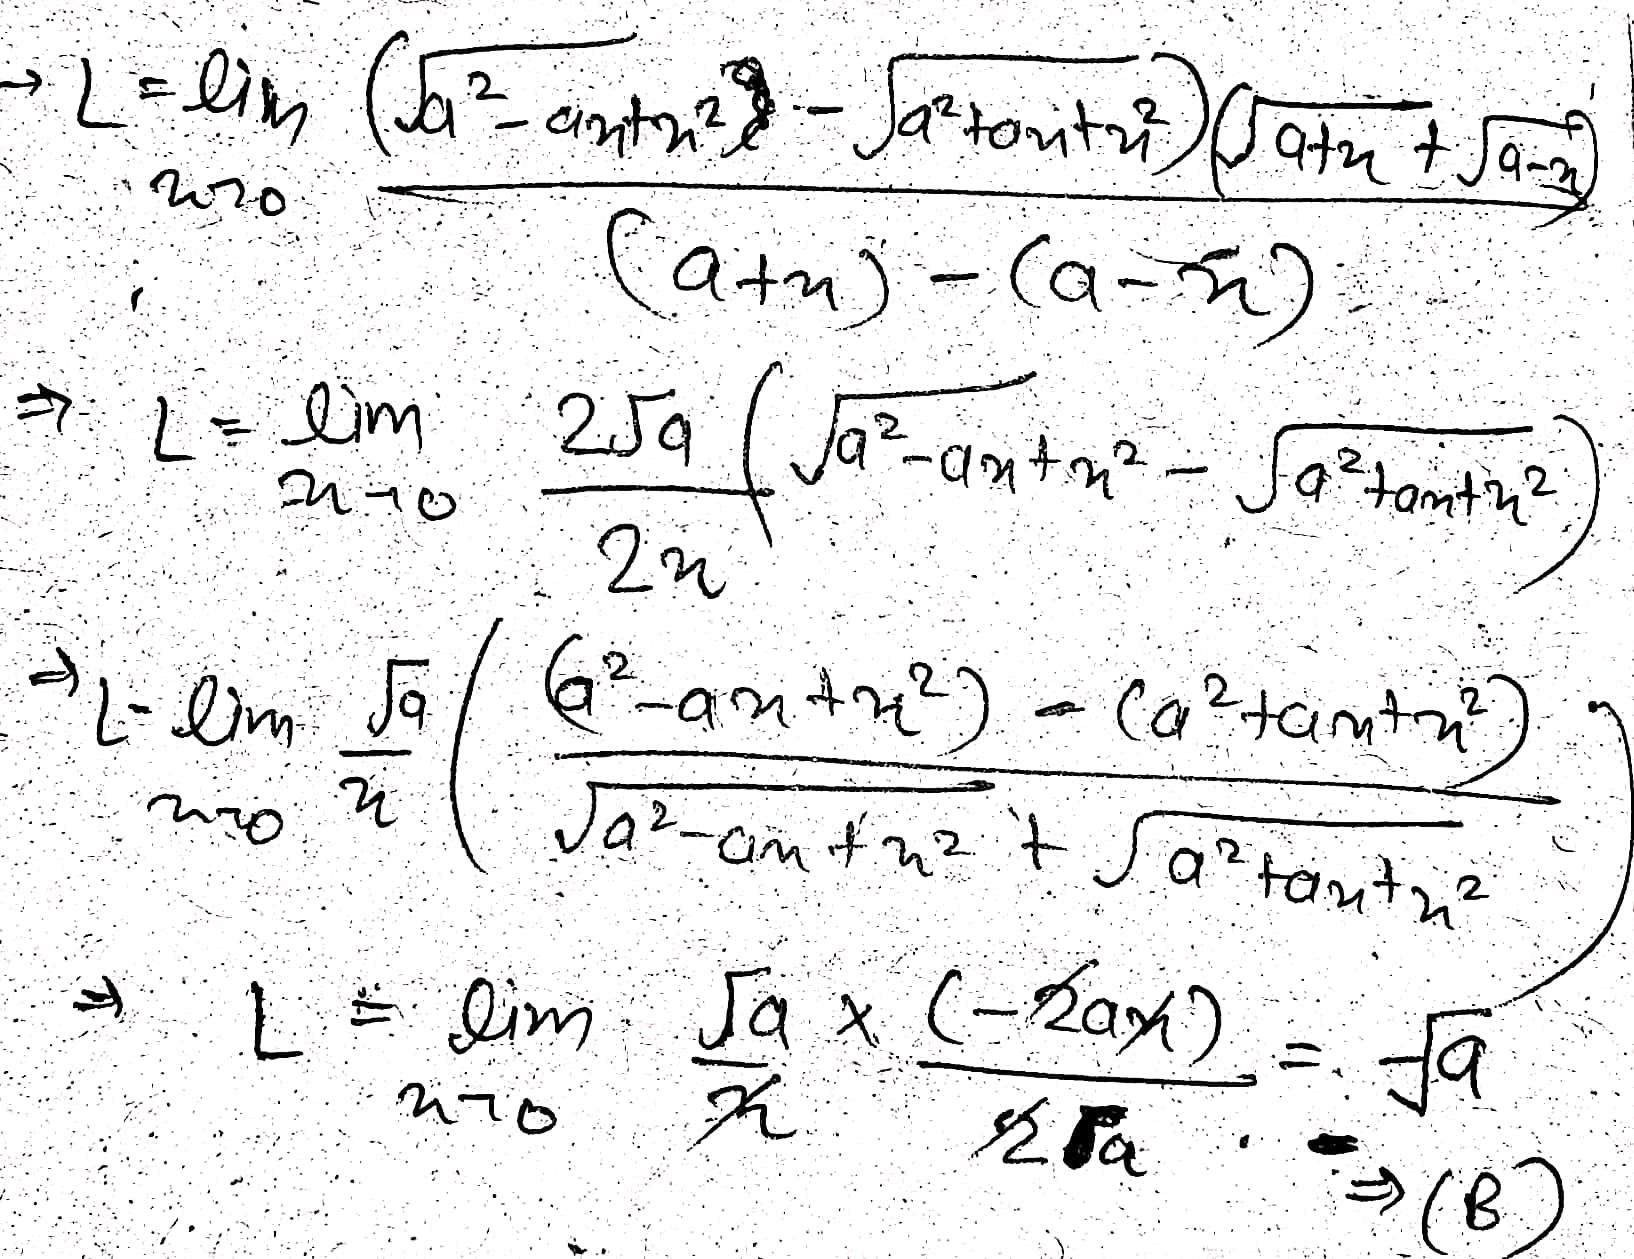 → L = lim x→0 (√(a² - ax + x²) - √(a² + ax + x²)) (√(a+x) + √(a-x)) / ((a+x) - (a-x))
⇒ L = lim x→0 2√a / 2x (√(a² - ax + x²) - √(a² + ax + x²))
⇒ L = lim x→0 √a / x ( ((a² - ax + x²) - (a² + ax + x²)) / (√(a² - ax + x²) + √(a² + ax + x²)) )
⇒ L = lim x→0 √a / x × (-2ax) / 2a = -√a
⇒ (B)